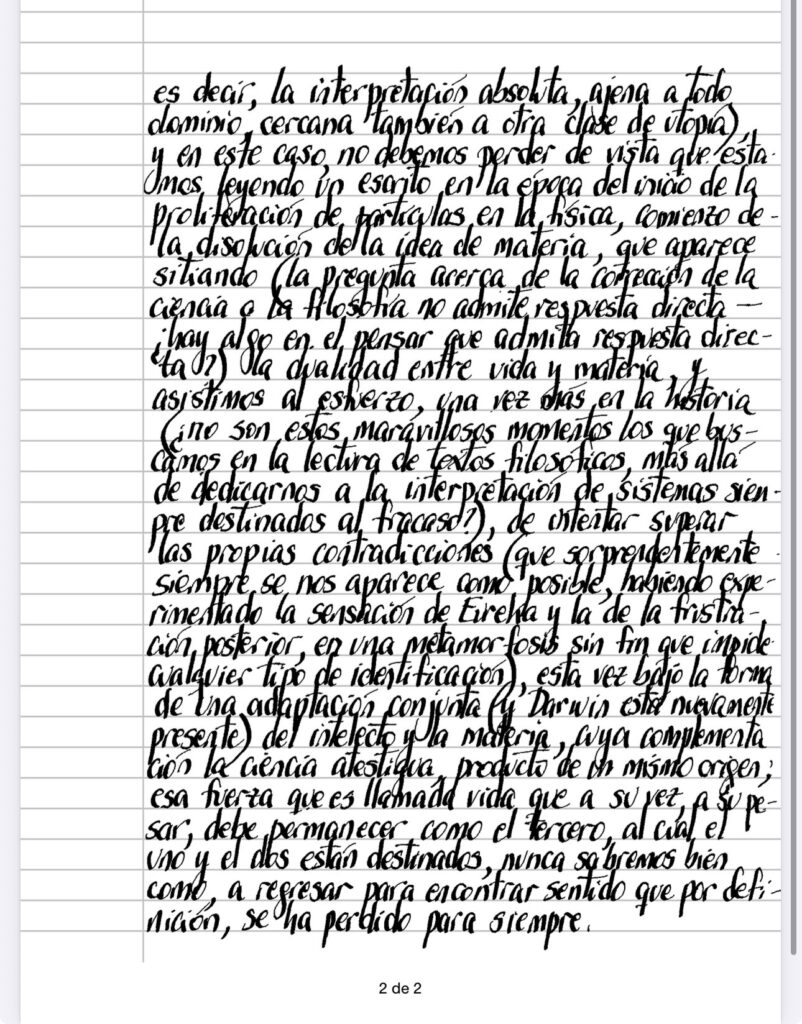 es decir, la interpretación absoluta, ajena a todo
dominio, cercana también a otra clase de utopía),
y en este caso, no debemos perder de vista que esta-
mos leyendo un escrito en la época del inicio de la
proliferación de partículas en la física, comienzo de
la disolución de la idea de materia, que aparece
sitiando (la pregunta acerca de la corrección de la
ciencia o la filosofía no admite respuesta directa —
¿hay algo en el pensar que admita respuesta direc-
ta?) la dualidad entre vida y materia, y
asistimos al esfuerzo, una vez más en la historia
(¿no son estos maravillosos momentos los que bus-
camos en la lectura de textos filosóficos, más allá
de dedicarnos a la interpretación de sistemas siem-
pre destinados al fracaso?), de intentar superar
las propias contradicciones (que sorprendentemente
siempre se nos aparece como posible, habiendo expe-
rimentado la sensación de Eureka y la de la frustra-
ción posterior, en una metamorfosis sin fin que impide
cualquier tipo de identificación), esta vez bajo la forma
de una adaptación conjunta (y Darwin está nuevamente
presente) del intelecto y la materia, cuya complementa
ción la ciencia atestigua, producto de un mismo origen;
esa fuerza que es llamada vida que a su vez, a su pe-
sar, debe permanecer como el tercero, al cual el
uno y el dos están destinados, nunca sabremos bien
como, a regresar para encontrar sentido que por defi-
nición, se ha perdido para siempre.
2 de 2